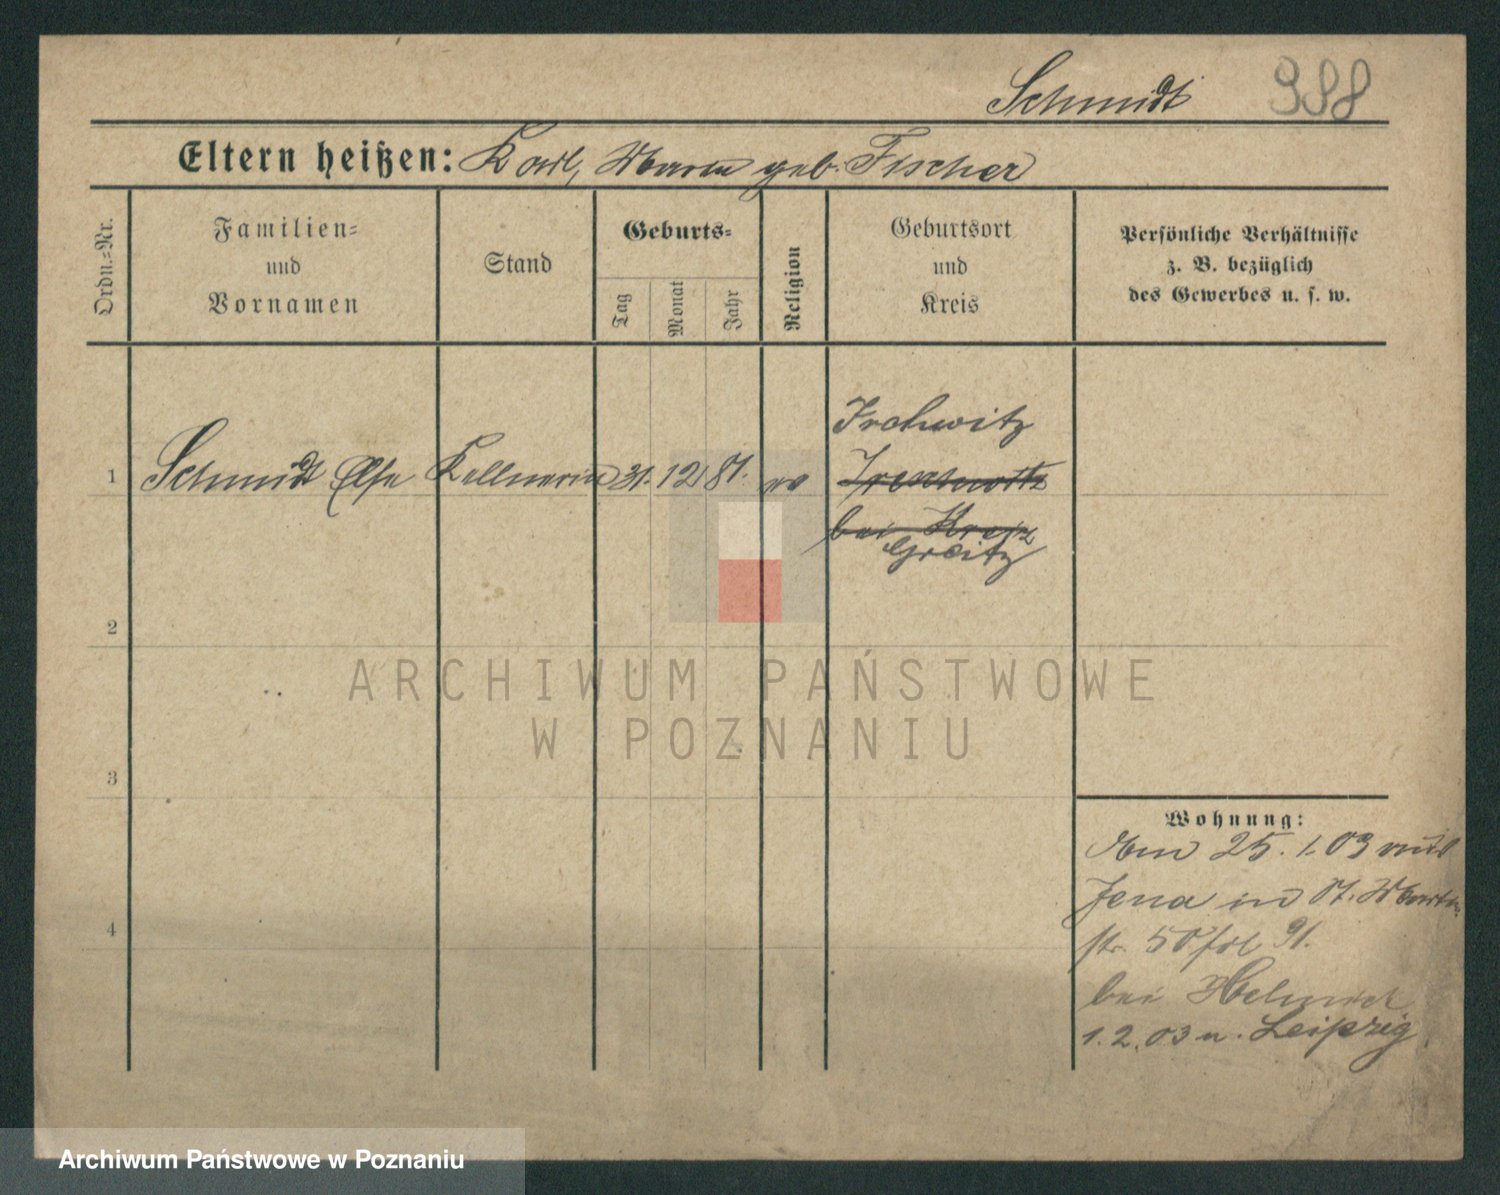 Schmidt 388
Eltern heißen: Karl, Marie geb. Fischer
Ordn.-Nr.
Familien-
und
Vornamen
Stand
Geburts-
Tag
Monat
Jahr
Religion
Geburtsort
und
Kreis
Persönliche Verhältnisse
z. B. bezüglich
des Gewerbes u. s. w.
Irchwitz
1 Schmidt Else Kellnerin 31. 12 81. ev
bei Kreis
Greitz
2
ARCHIWUM PAŃSTWOWE
W POZNANIU
3
Wohnung:
Am 25. 1. 03 aus
Jena in St. Martin
str. 50
4
bei
1. 2. 03 n. Leipzig
Archiwum Państwowe w Poznaniu